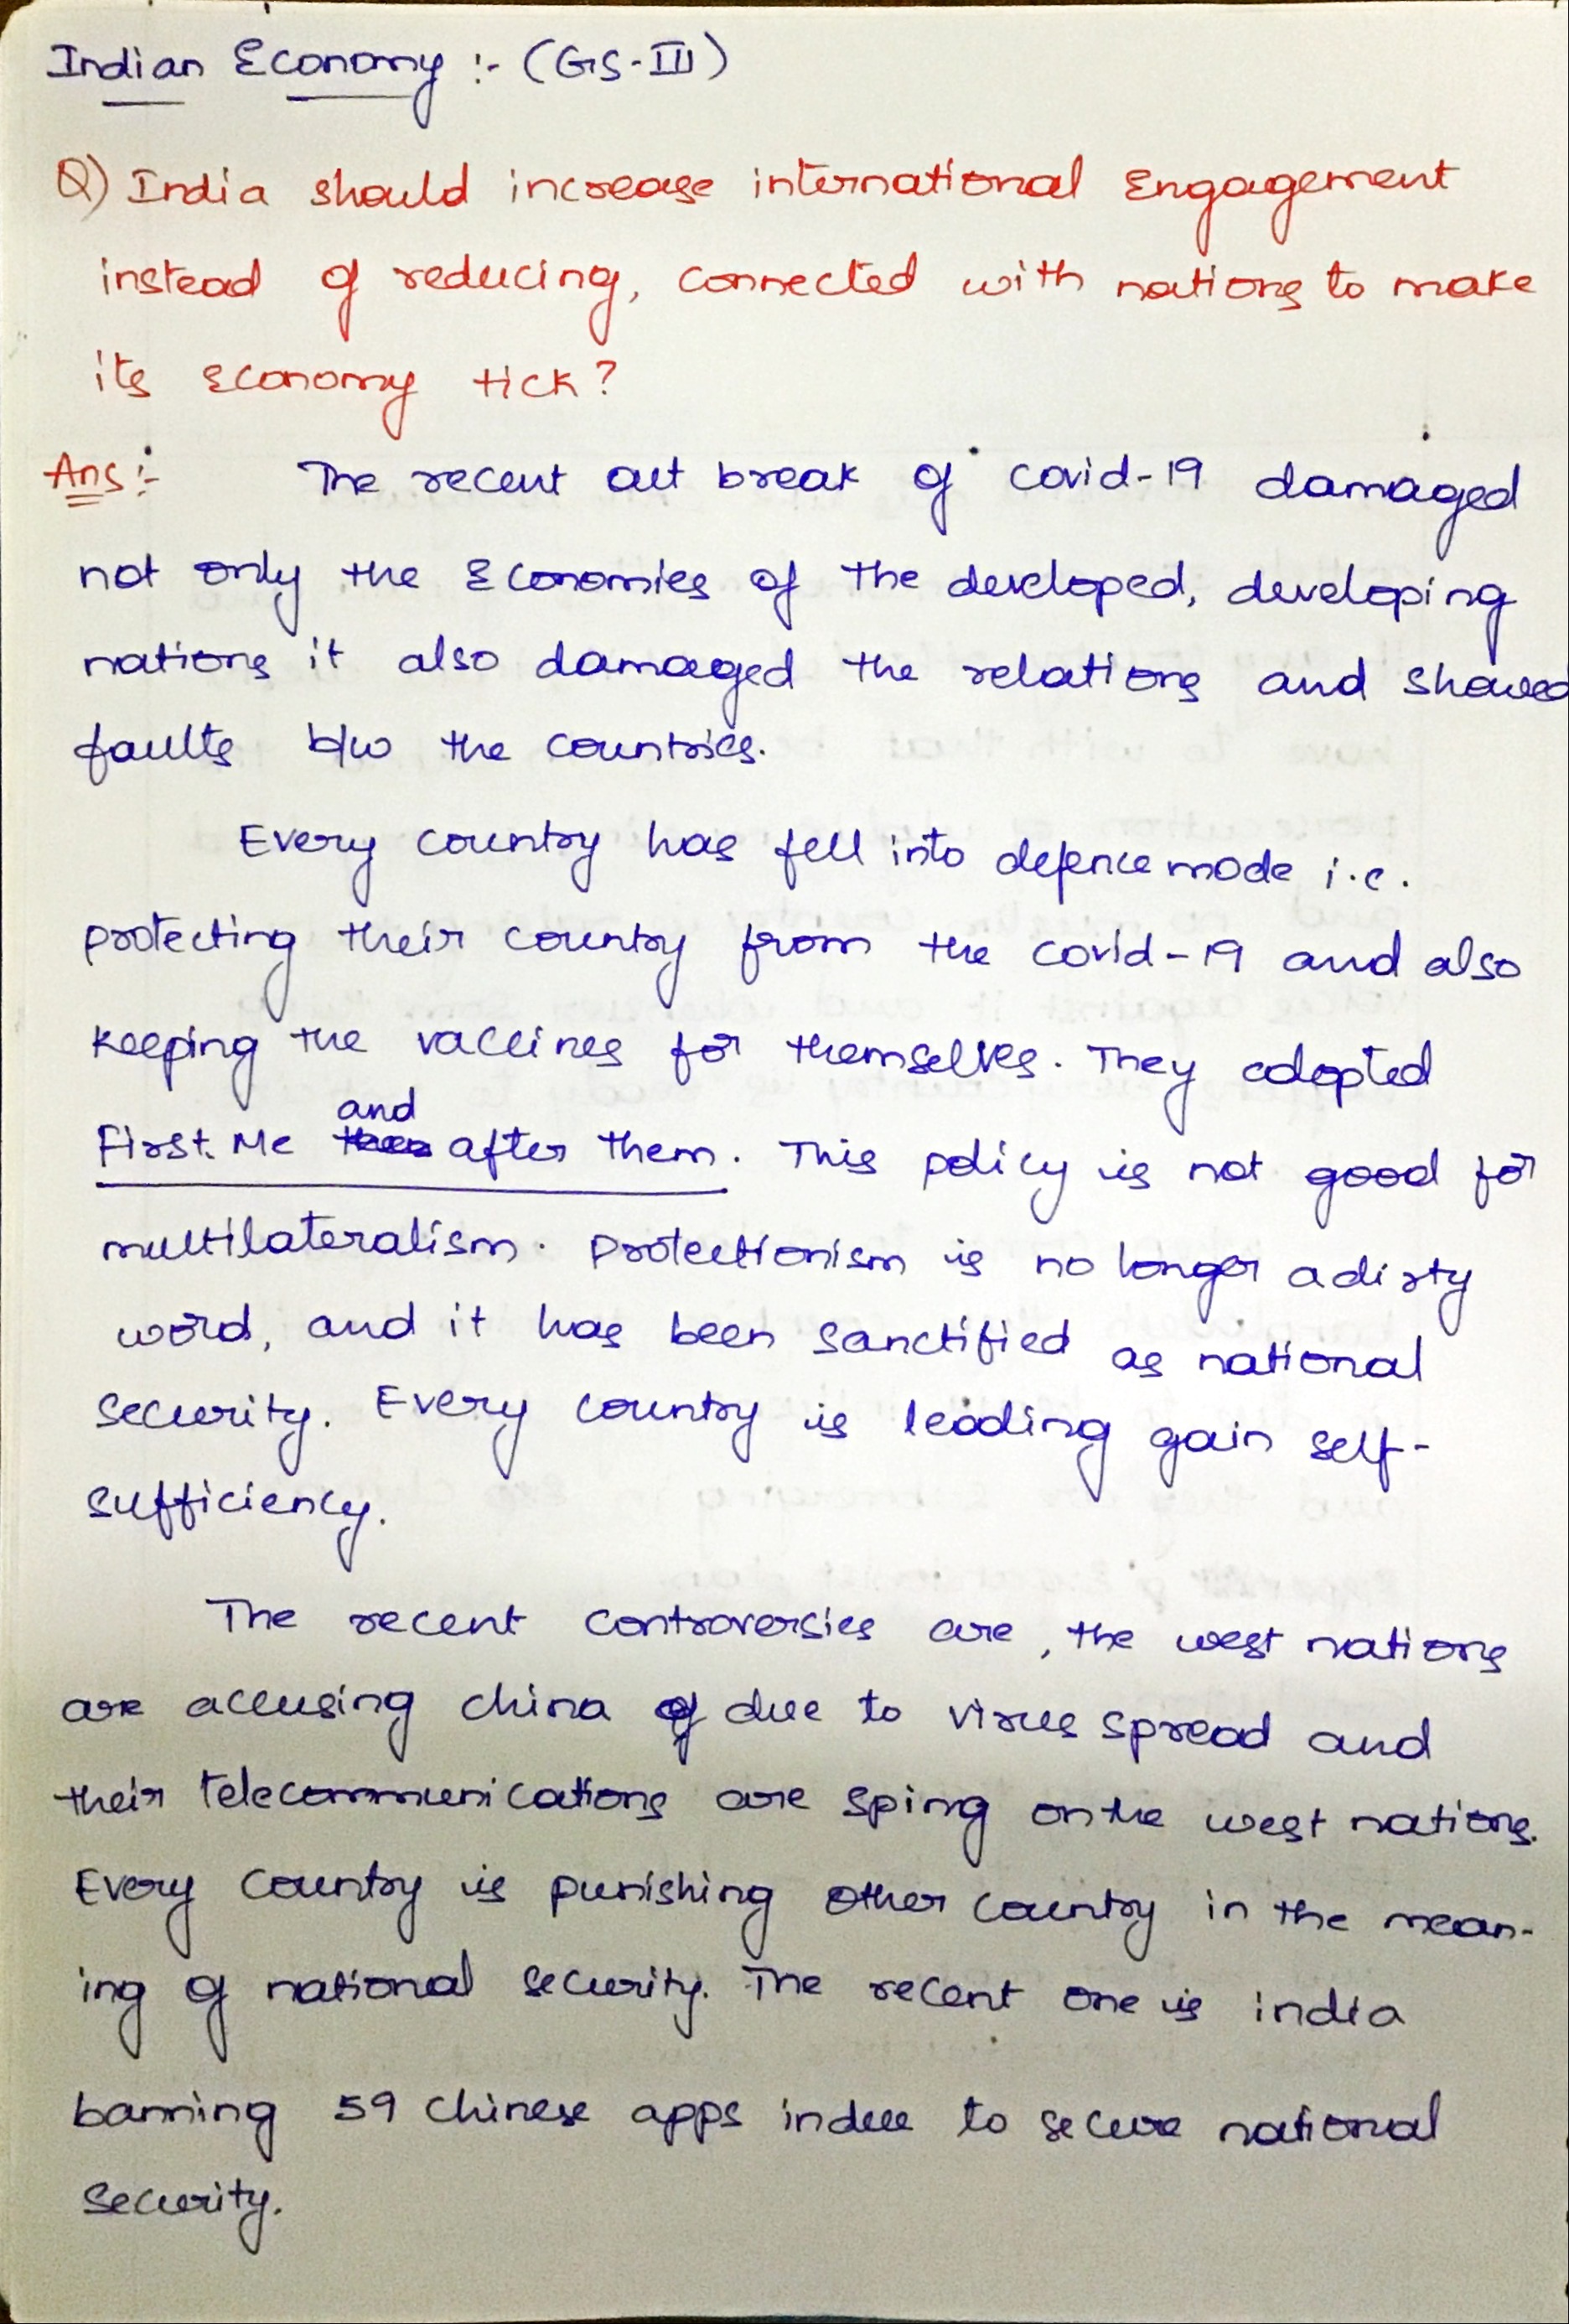 Indian Economy :- (GS-III)
Q) India should increase international Engagement
instead of reducing, connected with nations to make
its Economy tick?
Ans:- The recent out break of covid-19 damaged
not only the Economies of the developed, developing
nations it also damaged the relations and showed
faults b/w the countries.
Every country has fell into defence mode i.e.
protecting their country from the covid-19 and also
keeping the vaccines for themselves. They adopted
and
First Me then after them. This policy is not good for
multilateralism. Protectionism is no longer a dirty
word, and it has been sanctified as national
security. Every country is leading gain self-
sufficiency.
The recent controversies are, the west nations
are accusing china of due to virus spread and
their telecommunications are sping on the west nations.
Every country is punishing other country in the mean-
ing of national security. The recent one is india
banning 59 chinese apps indue to secure national
security.